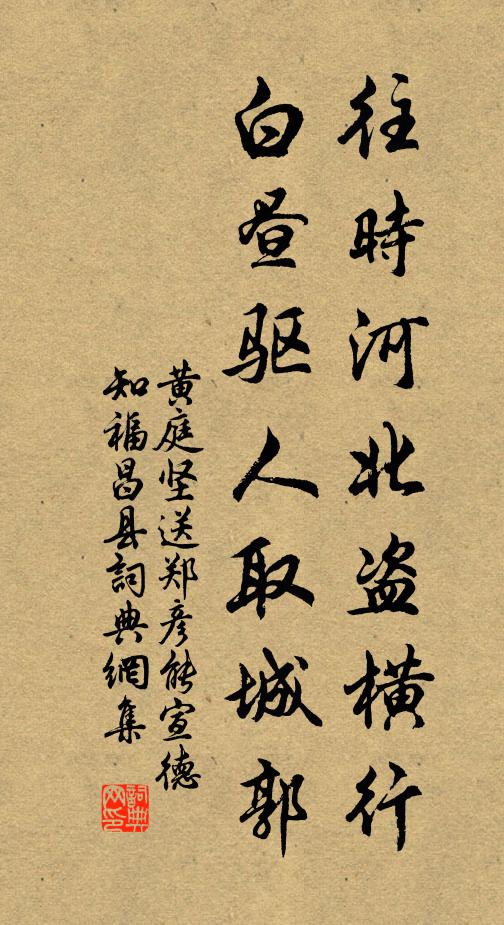 往時河北盗橫行
白昼驱人取城郭
黄庭坚送郑彦能宣德
知福昌县詞典網集
詞典網印